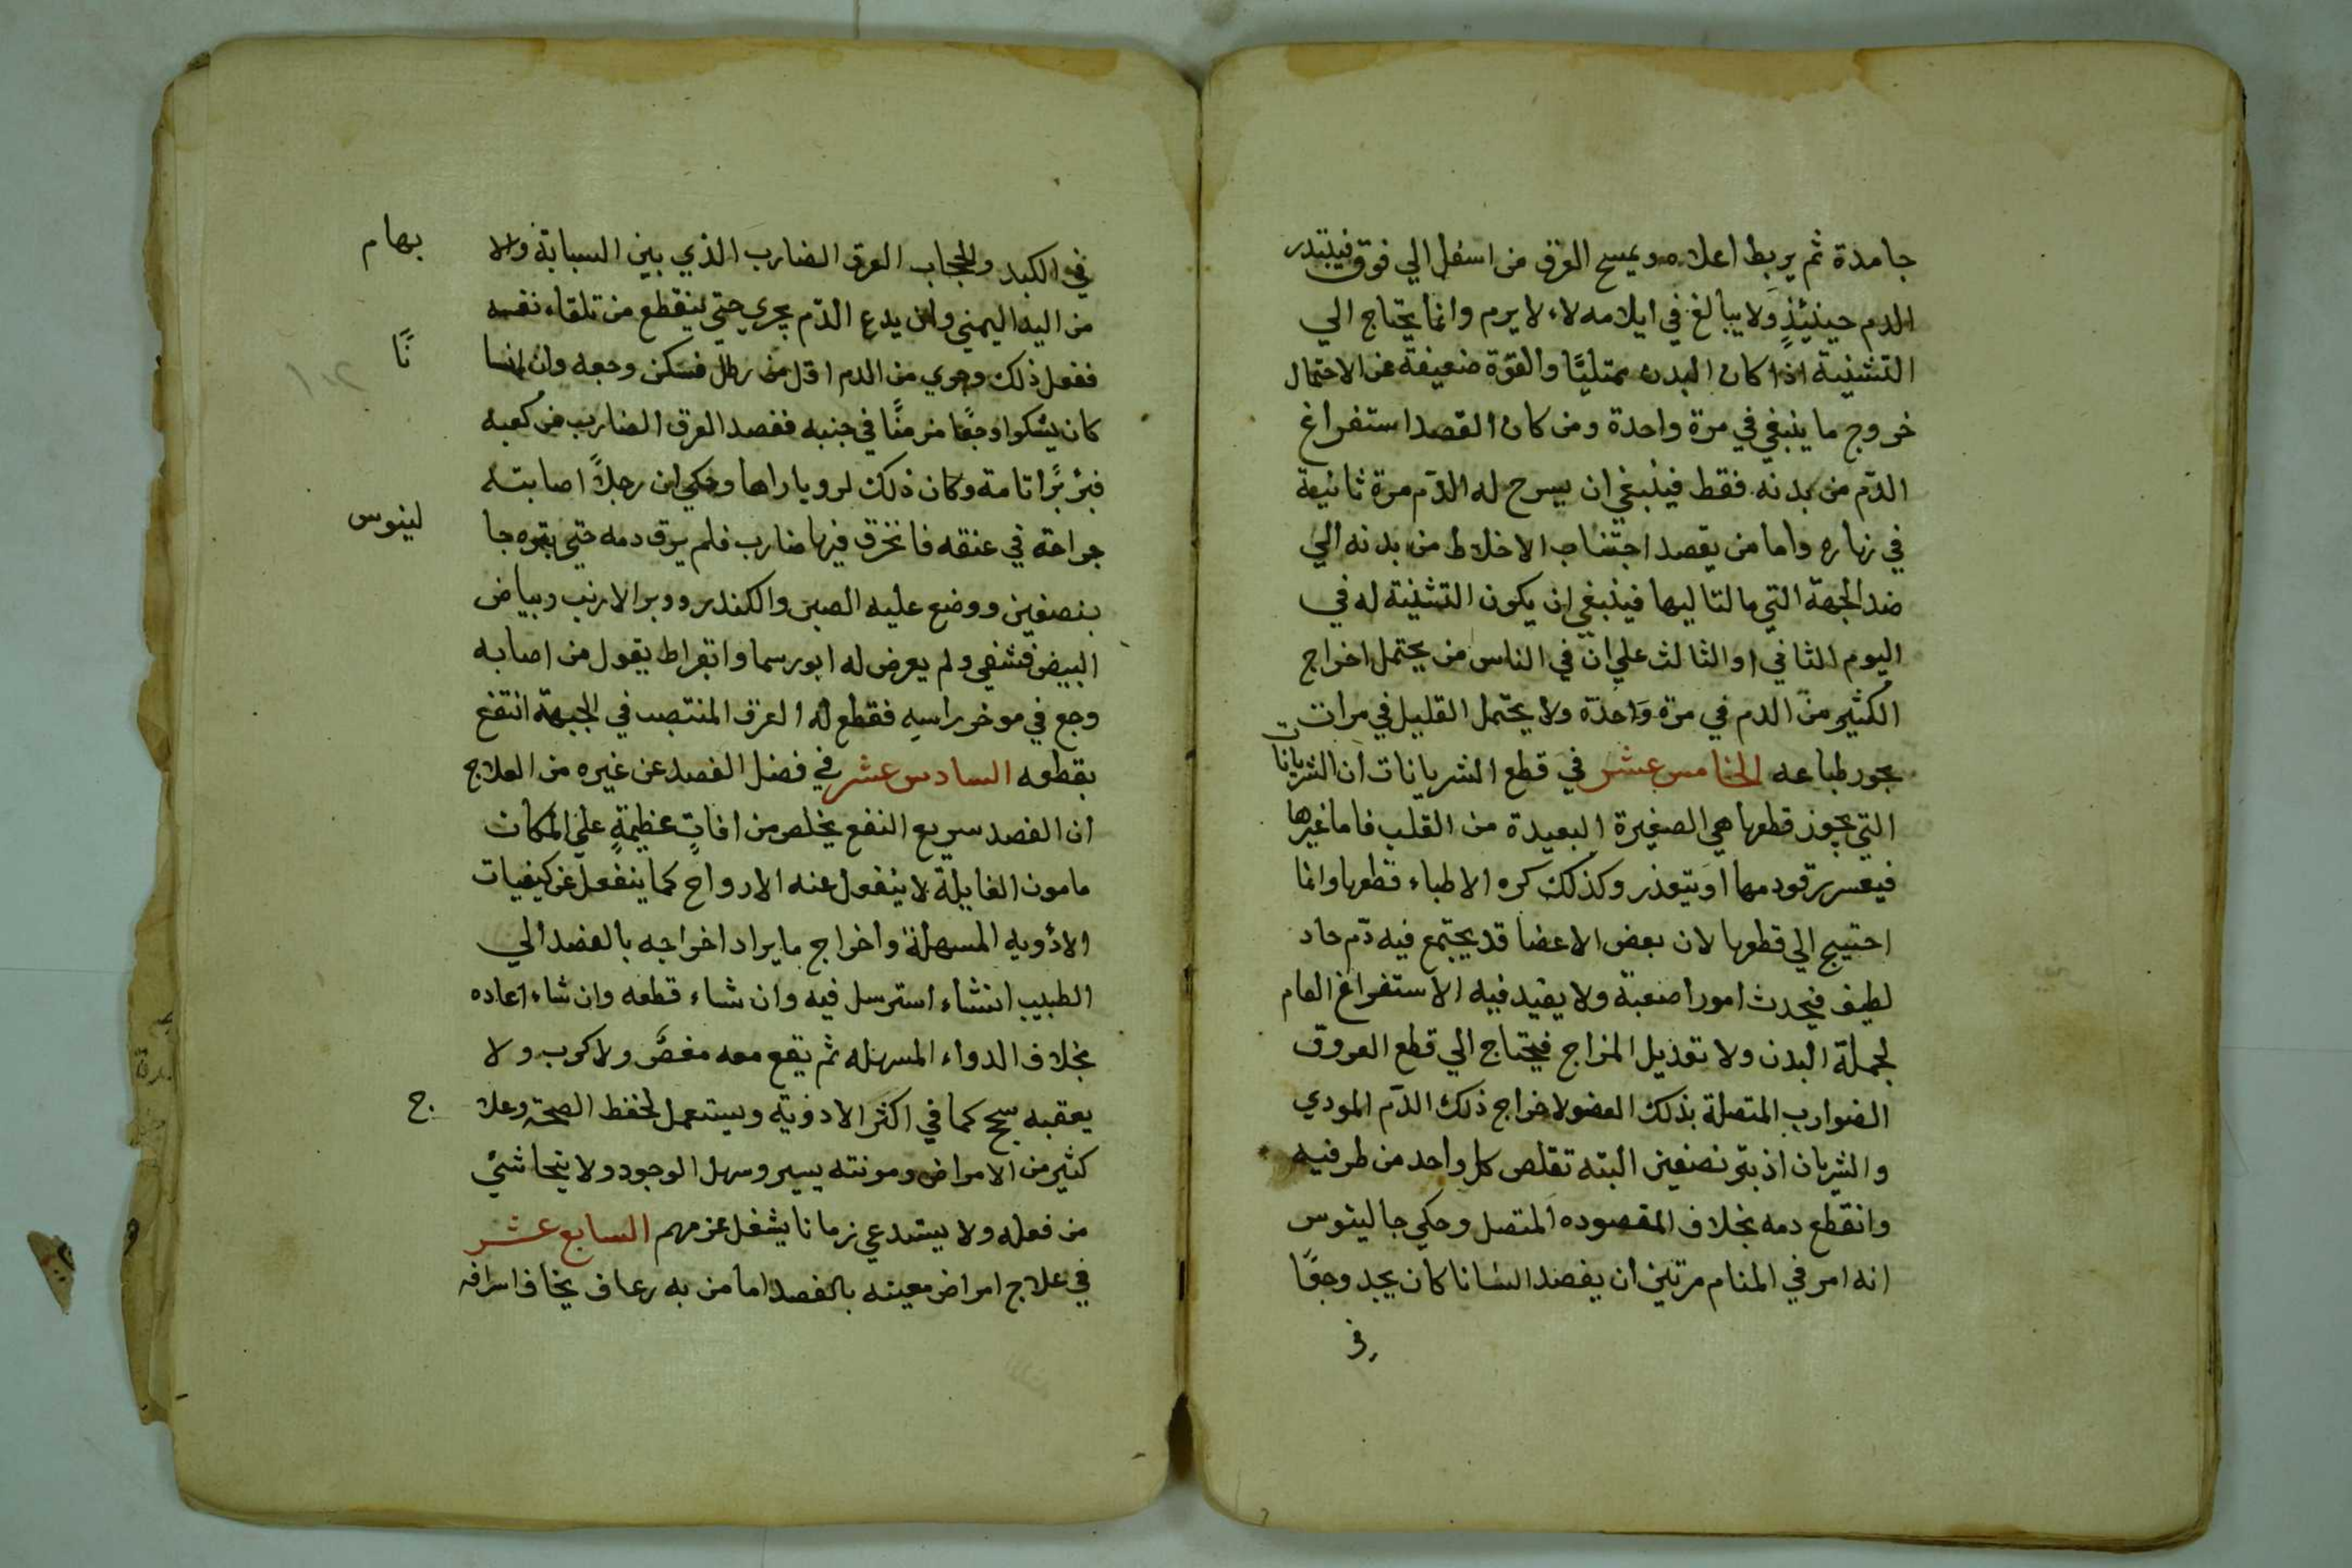 جامدة ثم يربط اعلاه ويمسح العرق من اسفل الي فوق فيبتدر
الدم حينئذٍ ولا يبالغ في ايلامه لاء لا يرم وانما يحتاج الي
التثنية اذا كان البدن ممتليًا والقوة ضعيفة عن الاحتمال
خروج ما ينبغي في مرة واحدة ومن كان القصد استفراغ
الدّم من بدنه فقط فينبغي ان يسرح له الدّم مرة ثانية
في نهاره واما من يقصد اجتناب الاخلاط من بدنه الي
ضد الجهة التي مالتا ليها فينبغي ان يكون التثنية له في
اليوم الثاني او الثالث علي انّ في الناس من يحتمل اخراج
الكثير من الدم في مرة واحدة ولا يحتمل القليل في مرات
بجور طباعه الخامس عشر في قطع الشريانات ان الشريانات
التي يجوز قطعها هي الصغيرة البعيدة من القلب فاما غيرها
فيعسر رقود مها او يتعذر وكذلك كره الاطباء قطعها وانما
احتيج الي قطعها لان بعض الاعضا قد يجتمع فيه دّم حاد
لطيف فيحدث امورا صعبة ولا يفيد فيه الاستفراغ العام
لجملة البدن ولا تعديل المزاج فيحتاج الي قطع العروق
الضوارب المتصلة بذلك العضو لاخراج ذلك الدّم المودي
والشريان اذ بتر نصفين البته تقلص كل واحد من طرفيه
وانقطع دمه بخلاف المقصوده المتصل وحكي جالينوس
انه امر في المنام مرتين ان يفصد انسانا كان يجد وجعًا
في
في الكبد والحجاب العرق الضارب الذي بين السبابة والا بهام
من اليد اليمني وان يدع الدّم يجري حتي ينقطع من تلقاء نفسه
ففعل ذلك وجري من الدم اقل من رطل فسكن وجعه وان انسا نًا
كان يشكوا وجعًا مزمنًا في جنبه ففصد العرق الضارب من كعبه
فبرٔ برًا تامة وكان ذلك لرويا راها وحكي ان رجلاً اصابته
جراحة في عنقه فانخرق فيها ضارب فلم يرق دمه حتي بتره جا لينوس
بنصفين ووضع عليه الصبر والكندر ووبر الارنب وبياض
البيض فشفي ولم يعرض له ابورسما وابقراط يقول من اصابه
وجع في موخر راسه فقطع له العرق المنتصب في الجبهة انتفع
بقطعه السادس عشر في فضل الفصد عن غيره من العلاج
ان الفصد سريع النفع يخلص من افاتٍ عظيمةٍ علي المكان
مامون الغايلة لا ينفعل عنه الارواح كما ينفعل عن كيفيات
الادويه المسهلة واخراج ما يراد اخراجه بالفصد الي
الطبيب انشاء استرسل فيه وان شاء قطعه وان شاء اعاده
بخلاف الدواء المسهله ثم يقع معه مغصٌ ولا كرب ولا
يعقبه سحج كما في اكثر الادوية ويستعمل لحفظ الصحة وعلا ج
كثير من الامراض ومونته يسير وسهل الوجود ولا يتحاشي
من فعله ولا يستدعي زمانا يشغل عن مهم السابع عشر
في علاج امراض معينه بالفصد اما من به رعاف يخاف اسرافه